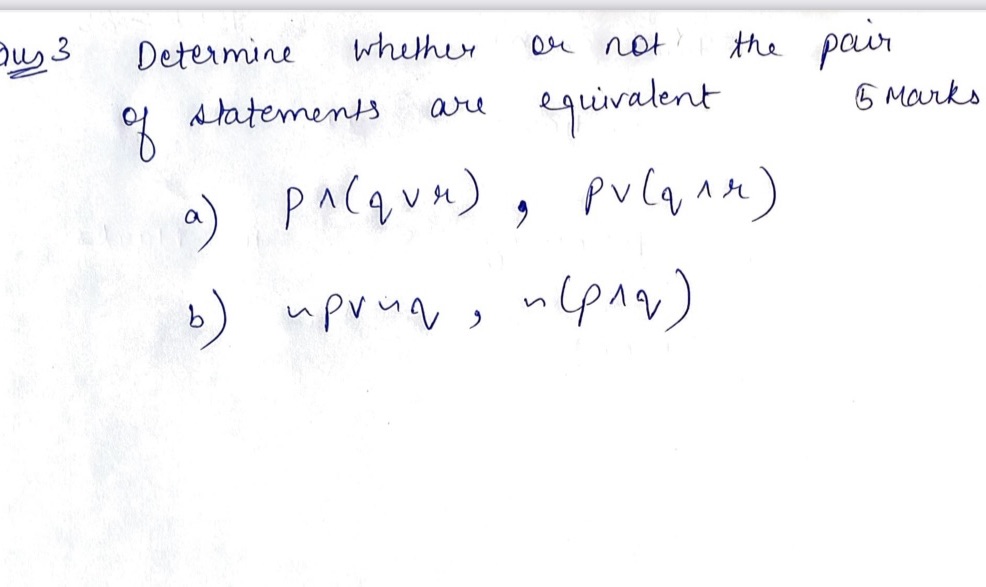 Ques 3 Determine whether or not the pair
of statements are equivalent 5 Marks
a) p ∧ (q ∨ r) , p ∨ (q ∧ r)
b) ~p ∨ ~q , ~(p ∧ q)